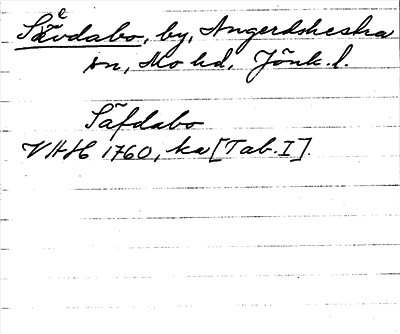 Sävdabo, by, Angerdshestra
sn, Mo hd, Jönk. l.
Säfdabo
VHH 1760, ka [Tab. I].